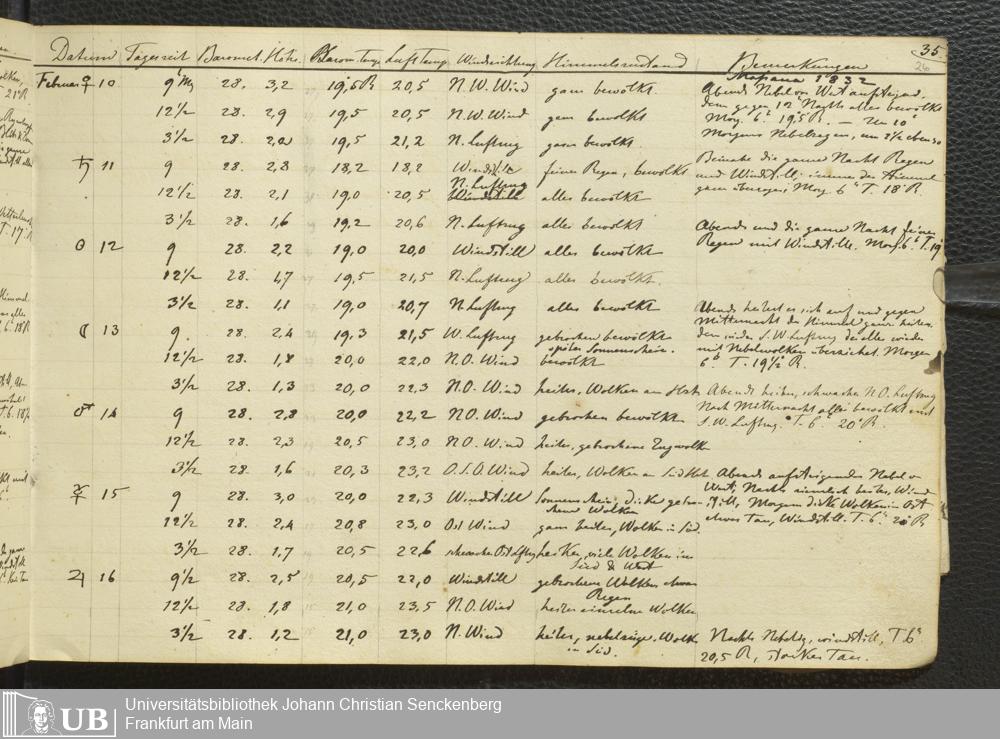 35
26
Datum Tageszeit Baromet. Höhe Barom. Temp Luft Temp Windrichtung Himmelszustand Bemerkungen
Maſsaua 1832
Februar ♀ 10 9 M 28. 3,2 19,5 R 20,5 N. W. Wind ganz bewölkt
Abends Nebel von West aufsteigend.
12 1/2 28. 2,9 19,5 20,5 N. W. Wind ganz bewölkt
dem gegen 12 Nachts alles bewölkt
Morg. 6 19,5 R. — Um 10
3 1/2 28. 2,0 19,5 21,2 N. Luftzug ganz bewölkt
Morgens Nebelregen, um 3 1/2 ebenso
♄ 11 9 28. 2,3 18,2 18,2 Windstille feiner Regen, bewölkt
Beinahe die ganze Nacht Regen
und Windstill, immer der Himmel
12 1/2 28. 2,1 19,0 20,5 N. Luftzug alles bewölkt
Morg. 6 T. 18 R.
3 1/2 28. 1,6 19,2 20,6 N. Luftzug alles bewölkt
Abends und die ganze Nacht feiner
Regen mit Windstille. Morg. 6 T. 19
☉ 12 9 28. 2,2 19,0 20,0 Windstill alles bewölkt
12 1/2 28. 1,7 19,5 21,5 N. Luftzug alles bewölkt.
3 1/2 28. 1,1 19,0 20,7 N. Luftzug alles bewölkt
Abends heitert es sich auf und gegen
Mitternacht der Himmel ganz heiter.
☾ 13 9. 28. 2,4 19,3 21,5 W. Luftzug gebrochen bewölkt
später Sonnenschein.
S. W. Luftzug der alles wieder
mit Nebelwolken überziehet. Morgen
6 T. 19 1/2 R.
12 1/2 28. 1,8 20,0 22,0 N. O. Wind bewölkt
3 1/2 28. 1,3 20,0 22,3 N. O. Wind heiter, Wolken am Hor.
Abends heiter, schwacher N. O. Luftzug
Nach Mitternacht alles bewölkt und
S. W. Luftzug. T. 6 20 R.
♂ 14 9 28. 2,8 20,0 22,2 N. O. Wind gebrochen bewölkt
12 1/2 28. 2,3 20,5 23,0 N. O. Wind heiter, gebrochene Zugwolk
3 1/2 28. 1,6 20,3 23,2 O. S. O. Wind heiter, Wolken am Süd Hor.
Abends aufsteigender Nebel v.
West, Nachts ziemlich heiter, Wind-
still, Morgens dicke Wolken in Ost
etwas Tau, Windstill. T. 6 20 R
☿ 15 9 28. 3,0 20,0 22,3 Windstill Sonnenschein, dicke gebro-
chene Wolken
12 1/2 28. 2,4 20,8 23,0 Ost Wind ganz heiter, Wolken in Süd.
3 1/2 28. 1,7 20,5 22,6 schwacher Ost Luftzug heiter, viele Wolken im
Süd & West
♃ 16 9 1/2 28. 2,5 20,5 22,0 Windstill gebrochene Wolken etwas
Regen
12 1/2 28. 1,8 21,0 23,5 N. O. Wind heiter einzelne Wolken
3 1/2 28. 1,2 21,0 23,0 N. Wind heiter, nebelartige Wolk
in Süd.
Nachts Nebelig, windstill, T. 6
20,5 R, starker Tau.
UB
Universitätsbibliothek Johann Christian Senckenberg
Frankfurt am Main